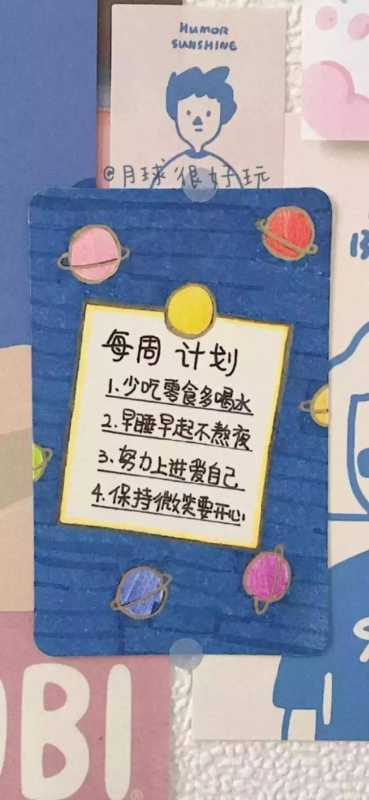 HUMOR
SUNSHINE
@月球很好玩
每周 计划
1.少吃零食多喝水
2.早睡早起不熬夜
3.努力上进爱自己
4.保持微笑要开心
OBI